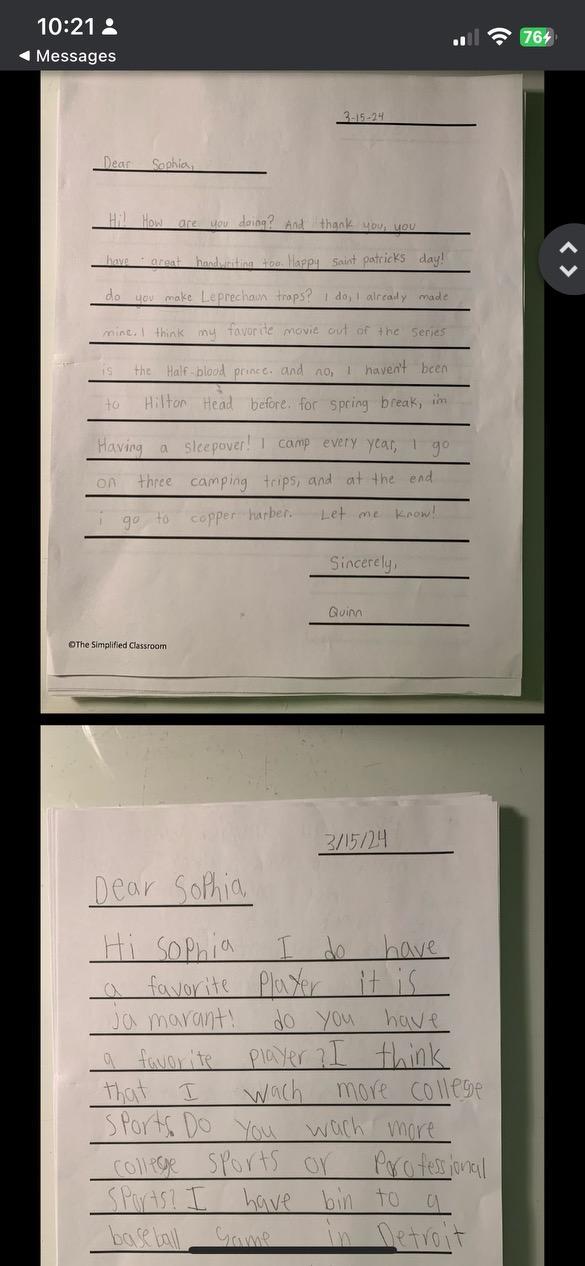 10:21
76
◄ Messages
3-15-24
Dear Sophia,
Hi! How are you doing? And thank you, you
have great handwriting too. Happy saint patricks day!
do you make Leprechaun traps? I do, I already made
mine. I think my favorite movie out of the series
is the Half-blood prince. and no, I haven't been
to Hilton Head before. for spring break, im
Having a sleepover! I camp every year, I go
on three camping trips, and at the end
i go to copper harber. Let me know!
Sincerely,
Quinn
©The Simplified Classroom
3/15/24
Dear Sophia,
Hi Sophia I do have
a favorite Player it is
ja marant! do you have
a favorite player? I think
that I wach more college
sports. Do you wach more
college sports or Professional
sports? I have bin to a
baseball game in Detroit